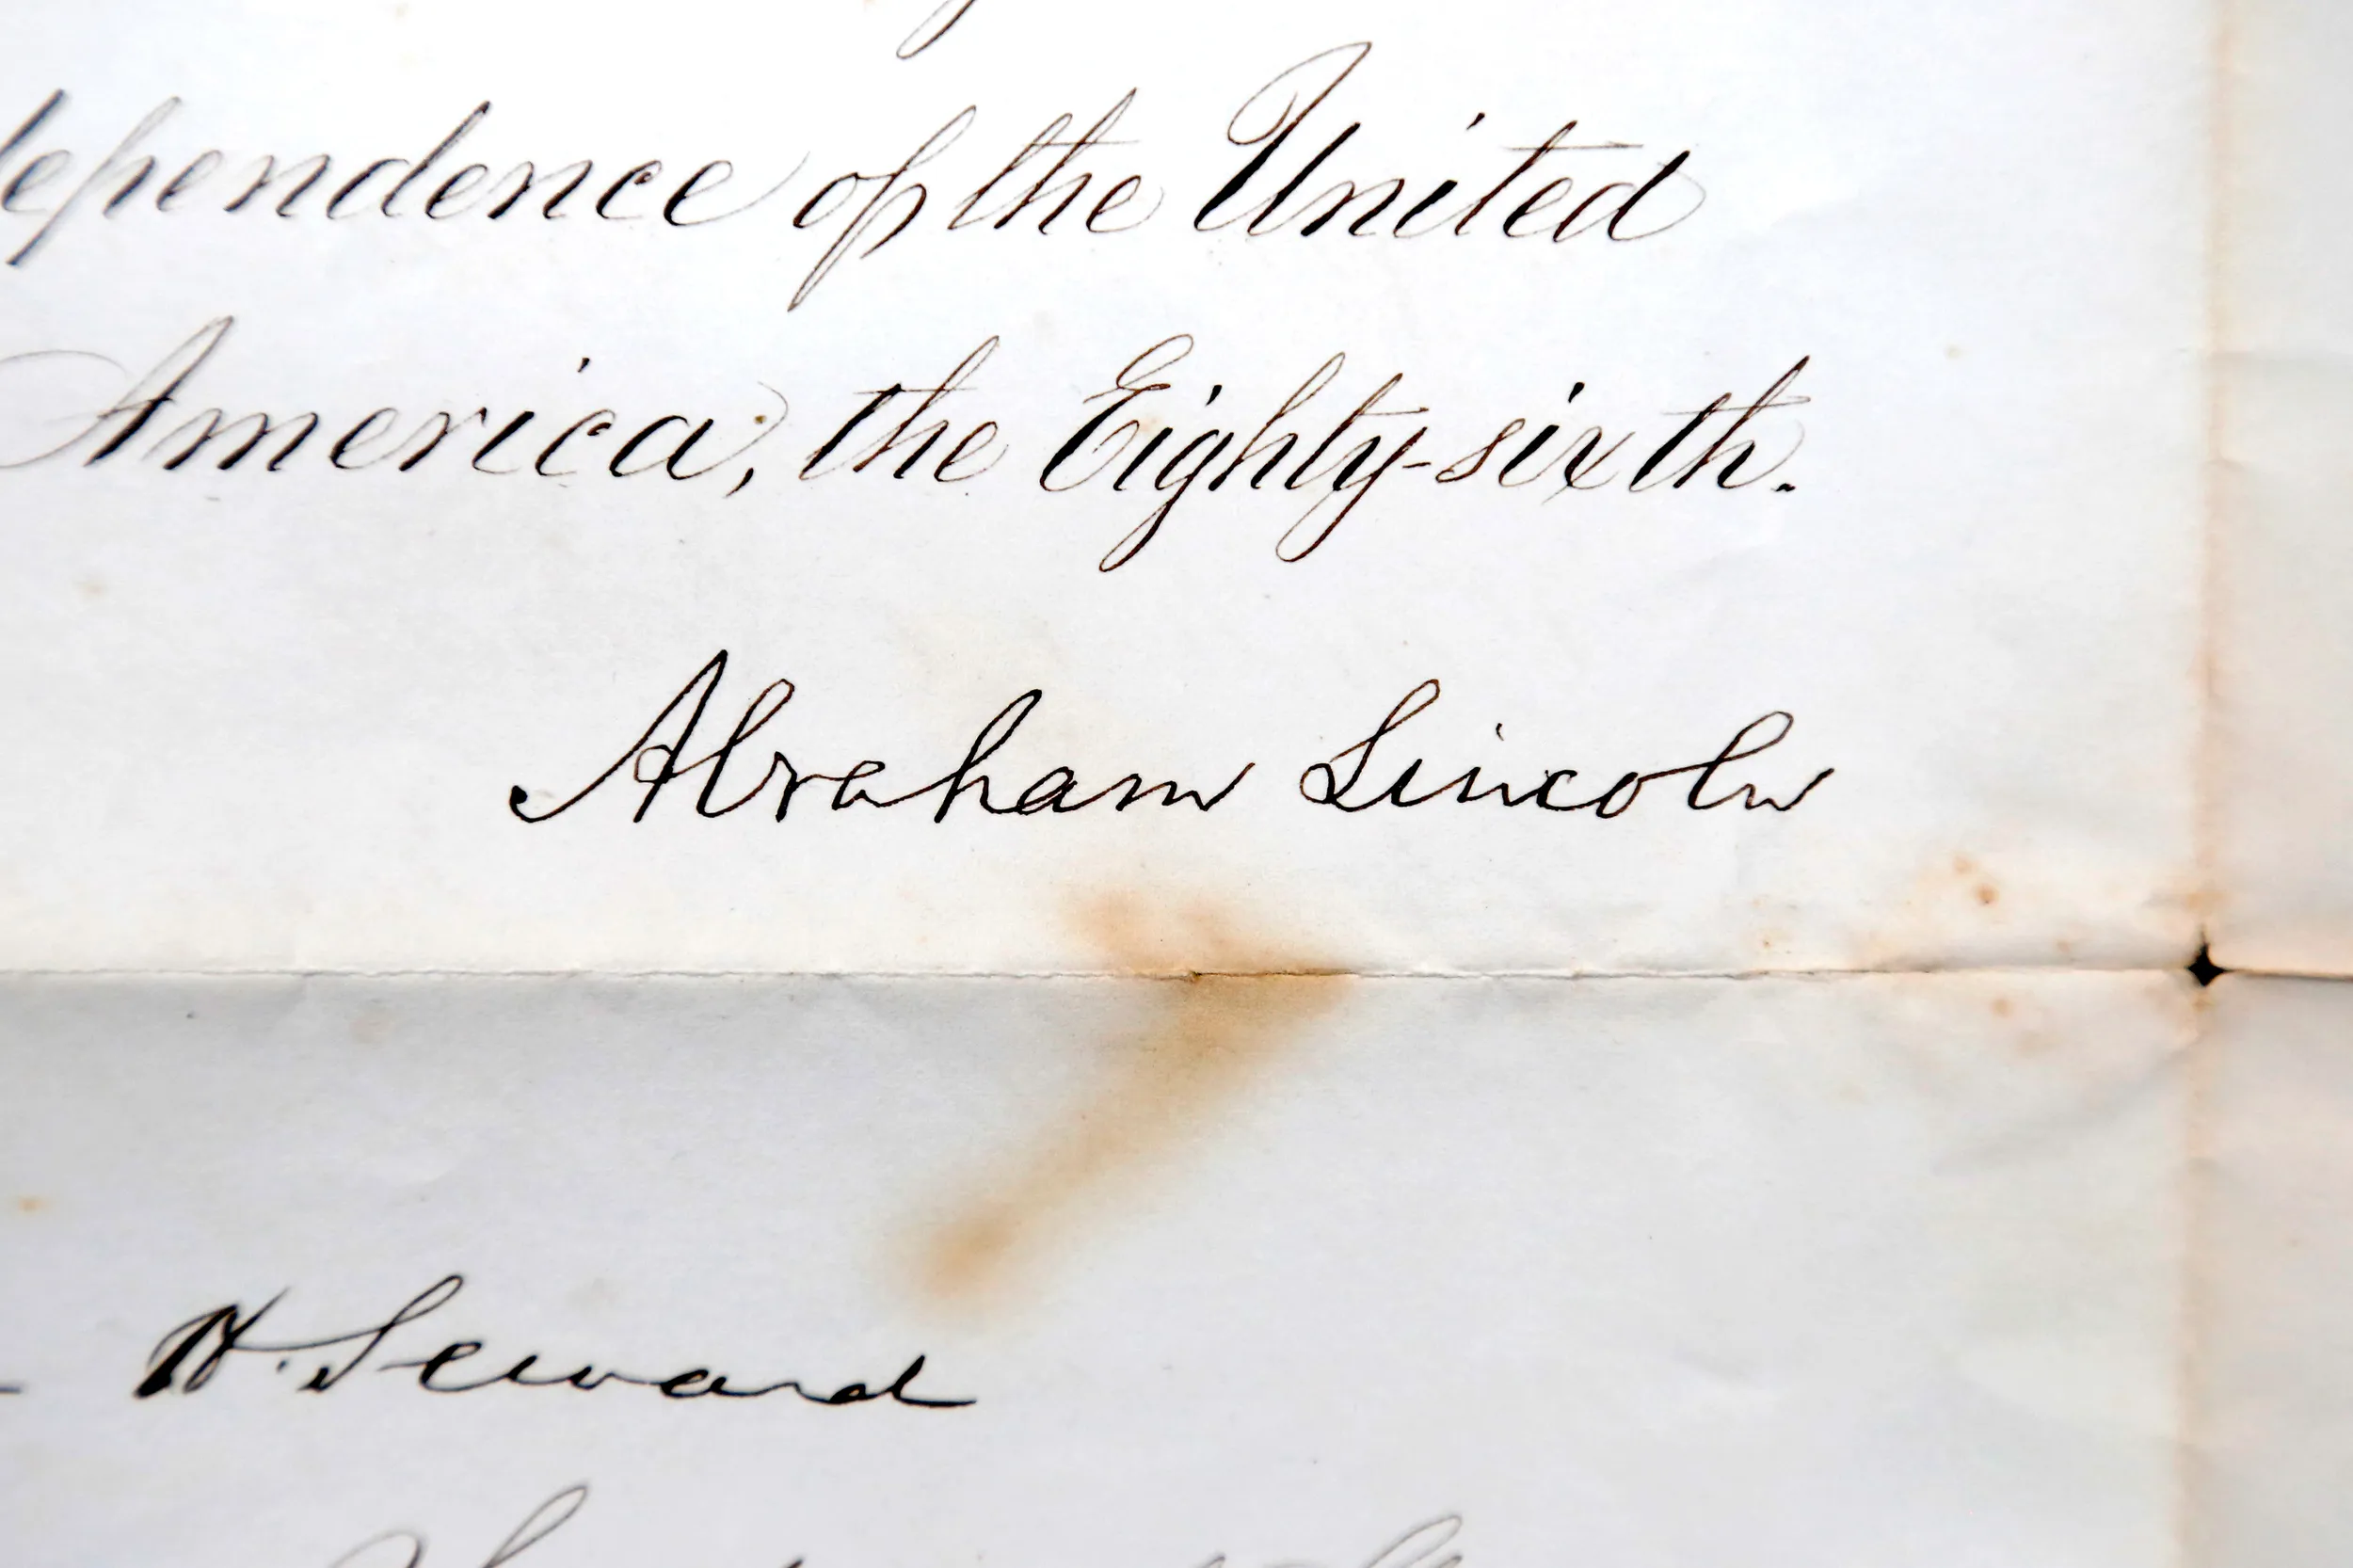 dependence of the United
America, the Eighty-sixth.
Abraham Lincoln
H. Seward